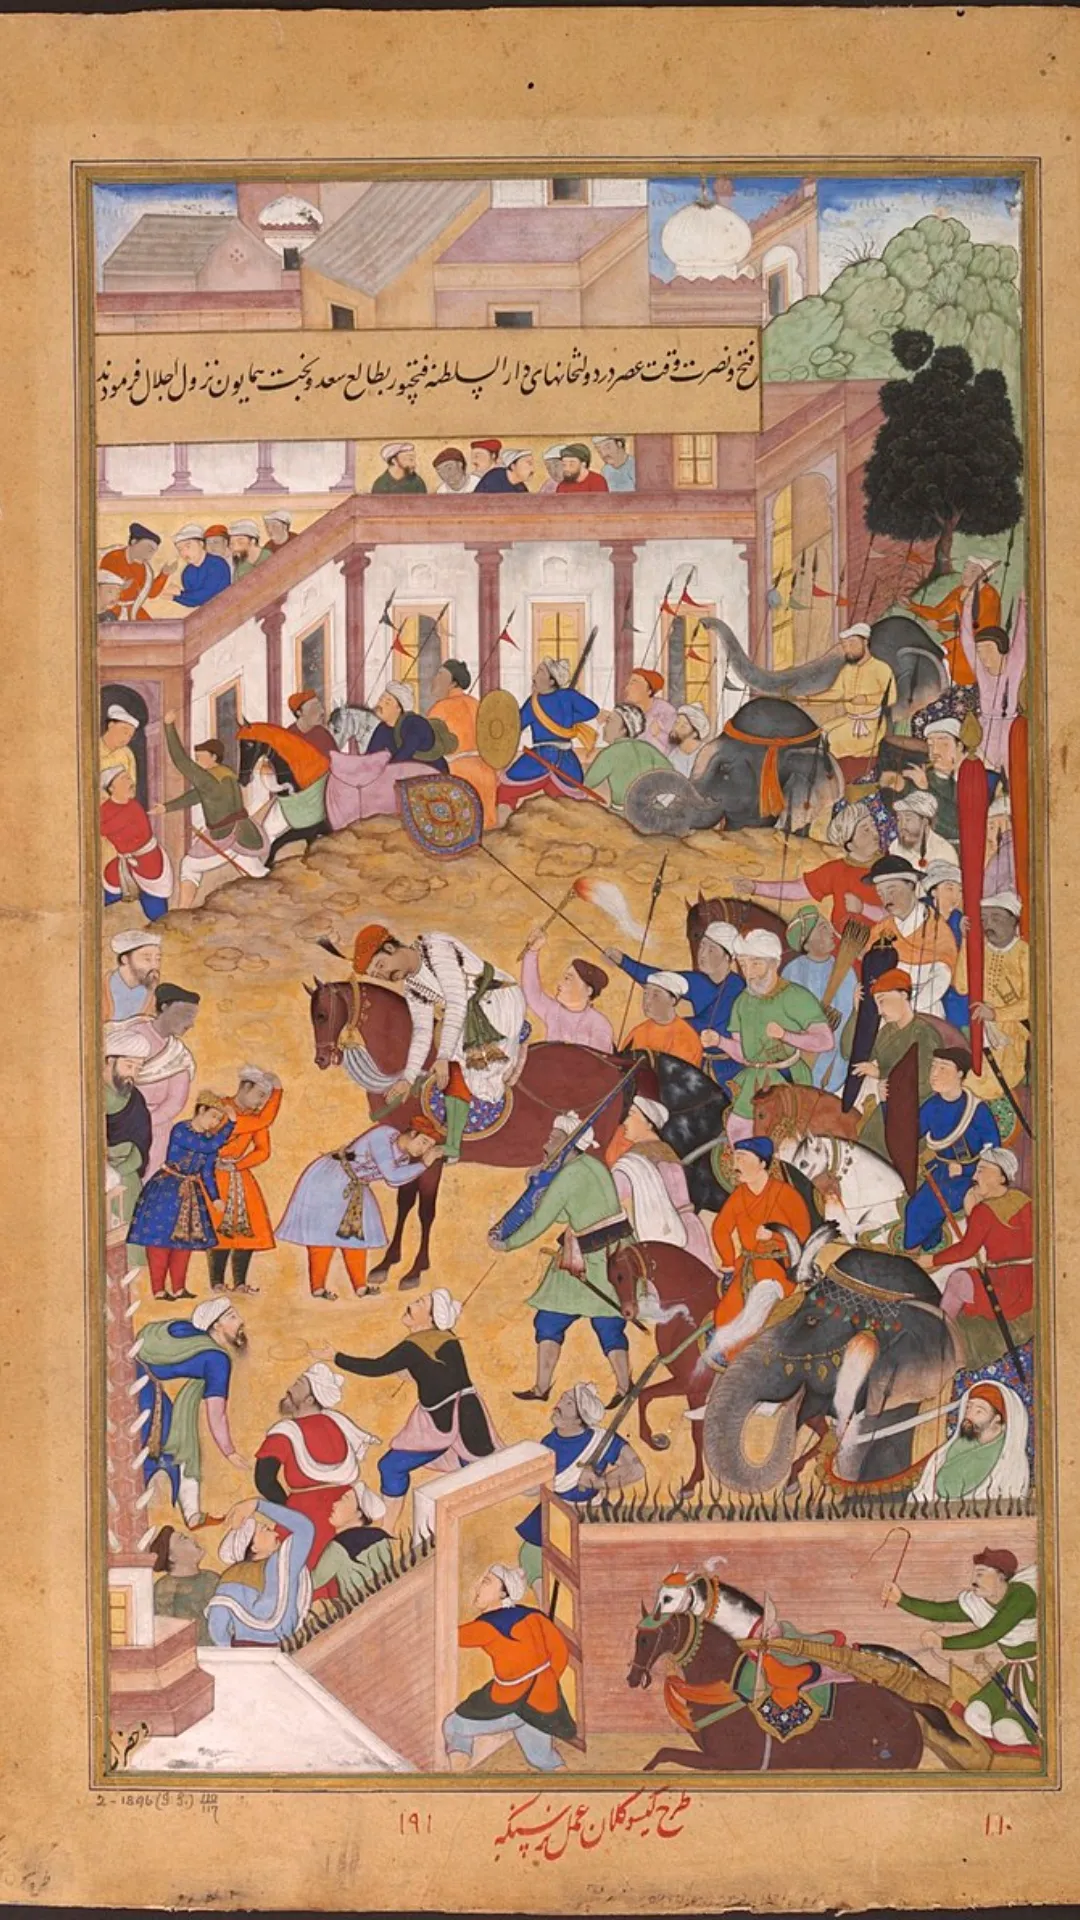 فتح و نصرت وقت عصر در دولتخانهای دار السلطنه فتحپور بطالع سعد و بخت همایون نزول اجلال فرمودند
2-1896 (I.S.) 110/117
۱۹۱
طرح کیسو کلان عمل نرسنگه
۱۱۰